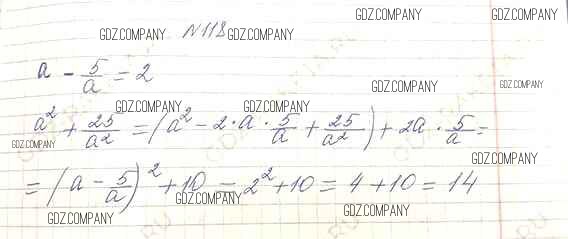 GDZ.COMPANY GDZ.COMPANY
GDZ.COMPANY №118 GDZ.COMPANY
a - 5/a = 2
GDZ.COMPANY GDZ.COMPANY
GDZ.COMPANY GDZ.COMPANY
a² + 25/a² = (a² - 2·a·5/a + 25/a²) + 2a·5/a =
GDZ.COMPANY GDZ.COMPANY
= (a - 5/a)² + 10 = 2² + 10 = 4 + 10 = 14
GDZ.COMPANY GDZ.COMPANY GDZ.COMPANY